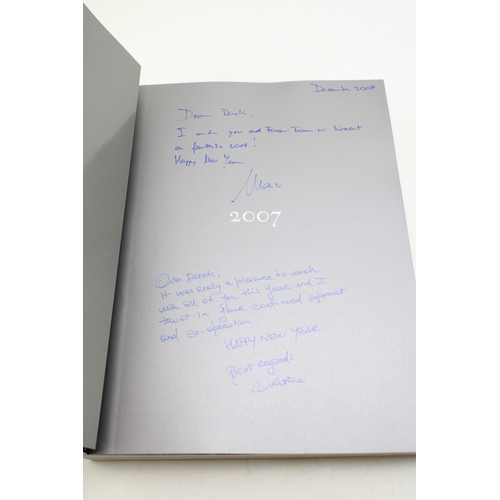 December 2007
Dear Derek,
I wish you and Team in Kuwait
a fantastic 2008!
Happy New Year
2007
Derek,
It was really a pleasure to work
with all of you this year and I
trust in your continued support
and co-operation
HAPPY NEW YEAR
Best regards